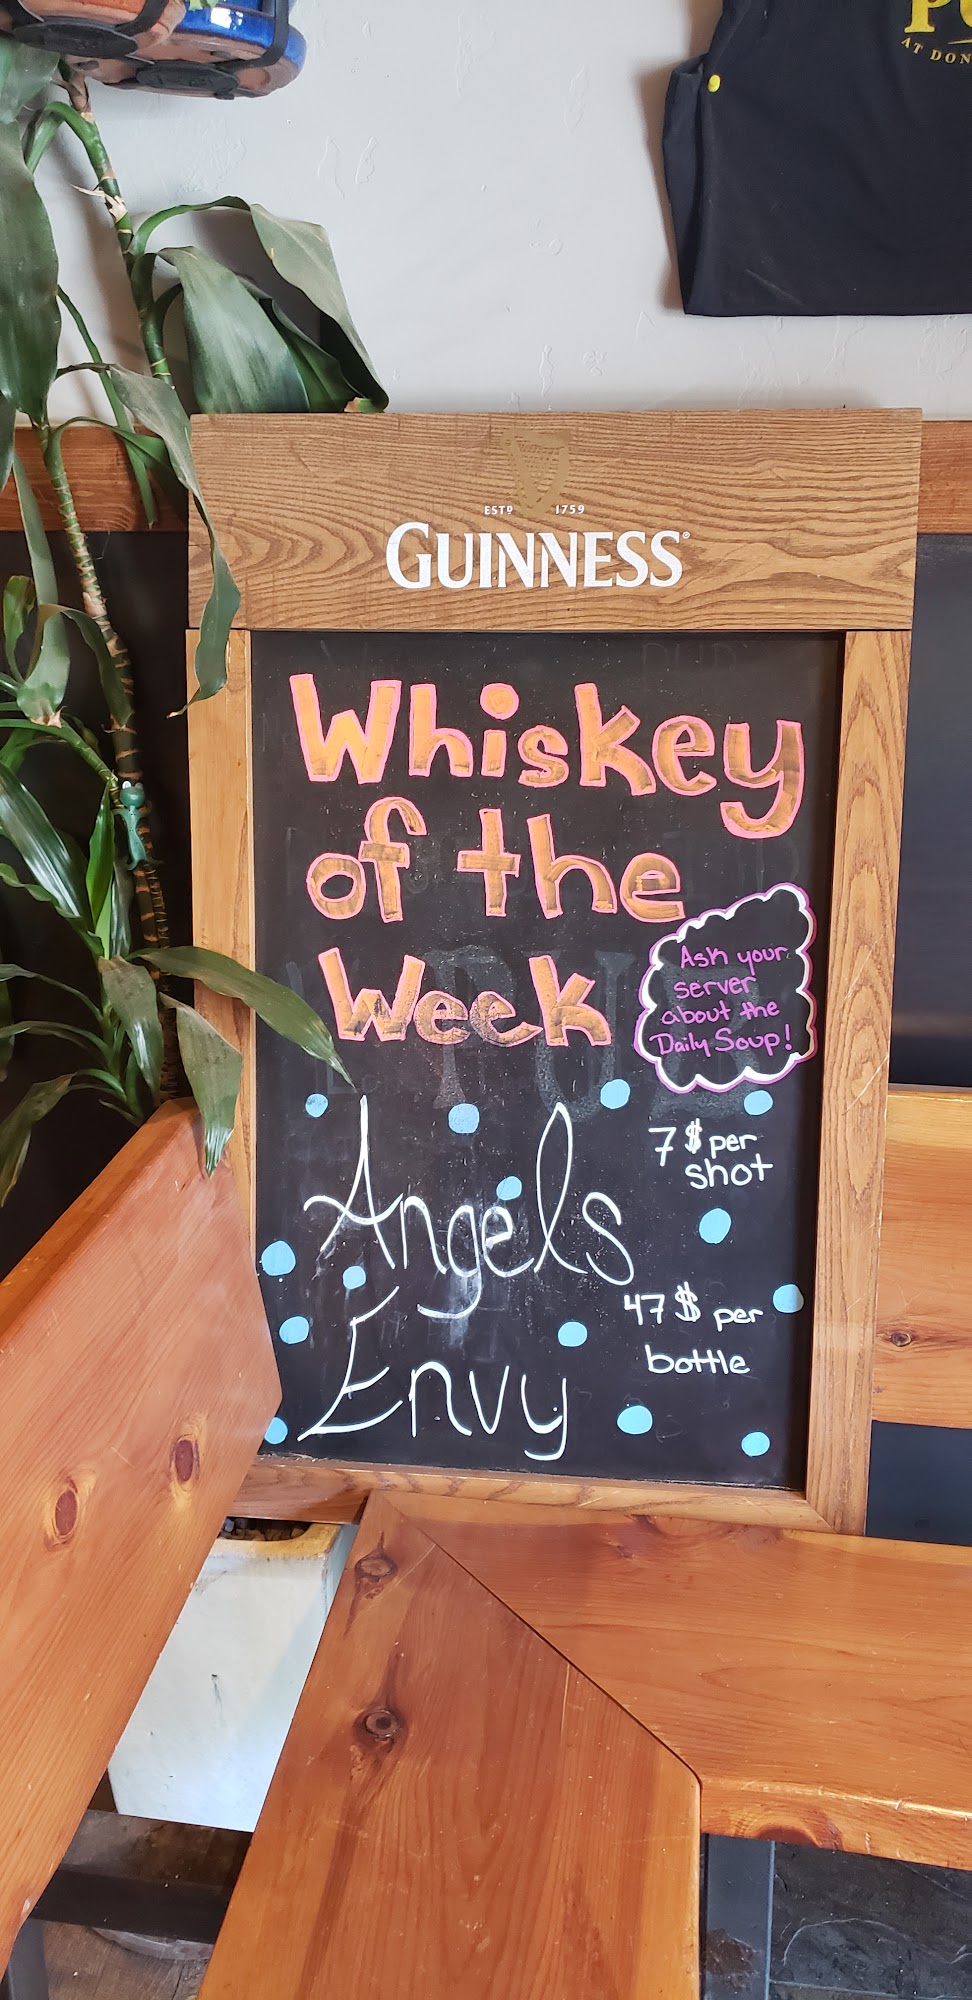 AT DON
ESTD 1759
GUINNESS®
Whiskey
of the
Week
Ask your
server
about the
Daily Soup!
7$ per
shot
Angels
Envy
47$ per
bottle